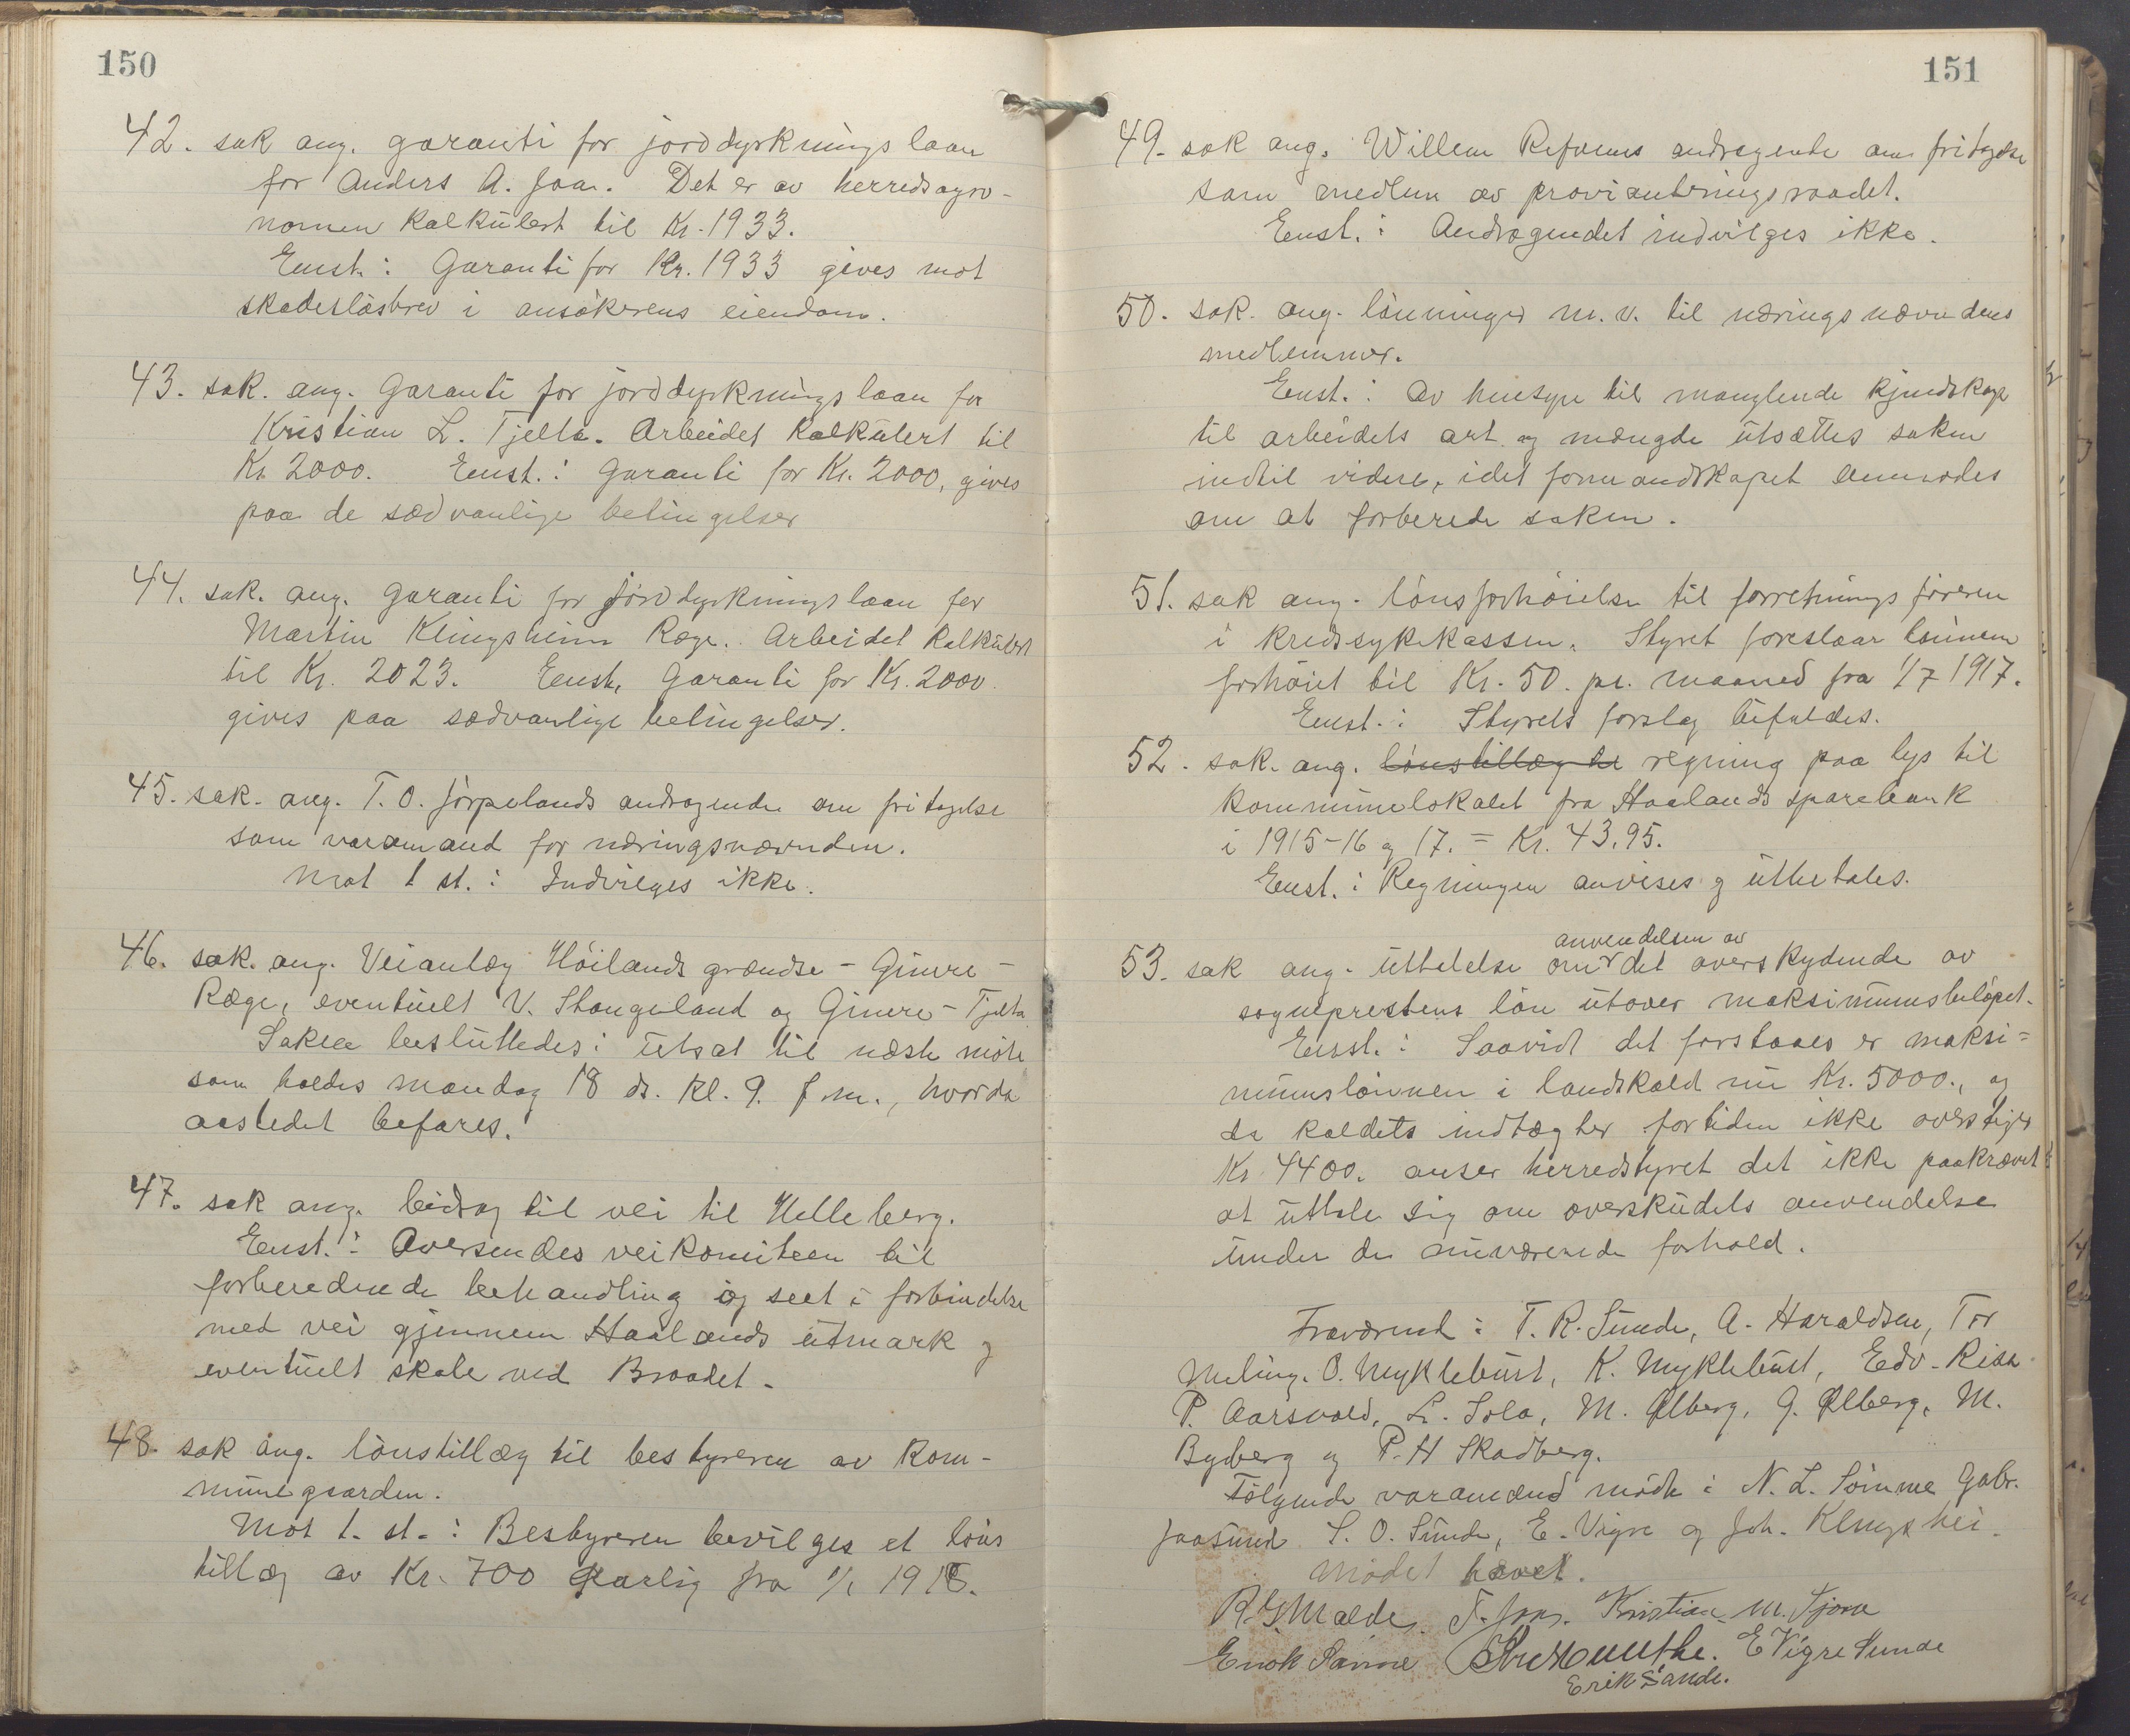 150
42. sak ang. garanti for jorddyrknings laan
for Anders A. Joa. Det er av herredsagro-
nomen kalkulert til Kr. 1933.
Enst.: Garanti for Kr. 1933 gives mot
skadeslösbrev i ansökerens eiendom.
43. sak. ang. Garanti for jorddyrknings laan for
Kristian L. Tjelta. Arbeidet kalkulert til
Kr. 2000. Enst.: Garanti for Kr. 2000, gives
paa de sædvanlige betingelser
44. sak. ang. garanti for jorddyrknings laan for
Martin Klingsheim Ræge. Arbeidet kalkulert
til Kr. 2023. Enst. Garanti for Kr. 2000.
gives paa sædvanlige betingelser.
45. sak. ang. T. O. Jörpelands andragende om fritagelse
som varamand for næringsnævnden.
Mot 1 st.: Indvilges ikke.
46. sak. ang. Veianlæg Höilands grændse - Gimre -
Ræge, eventuelt V. Stangeland og Gimre - Tjelta
Saken besluttedes: utsat til næste möte
som holdes mandag 18 ds. kl. 9. f.m., hvorda
aastedet befares.
47. sak ang. bidrag til vei til Helleberg.
Enst.: Oversendes veikomiteen til
forberedende behandling og seet i forbindelse
med vei gjennem Haalands utmark og
eventuelt skole ved Braadet.
48. sak ang. lönstillæg til bestyreren av Kom-
munegaarden.
Mot 1. st.: Bestyreren bevilges et löns
tillæg av Kr. 700 aarlig fra 1/1 1918.
151
49. sak ang. Willem Refsnes andragende om fritagelse
som medlem av provianteringsraadet.
Enst.: Andragendet indvilges ikke.
50. sak. ang. lönninger m.v. til næringsnævndens
medlemmer.
Enst.: Av hensyn til manglende kjendskap
til arbeidets art og mængde utsættes saken
indtil videre, idet formandskapet anmodes
om at forberede saken.
51. sak ang. lönsforhöielse til forretnings föreren
i kredssykekassen. Styret foreslaar lönnen
forhöiet til Kr. 50. pr. maaned fra 1/7 1917.
Enst.: Styrets forslag bifaldes.
52. sak. ang. lönstillæg til regning paa lys til
kommunelokalet fra Haalands sparebank
i 1915-16 og 17. = Kr. 43.95.
Enst.: Regningen anvises og utbetales.
anvendelsen av
53. sak ang. uttalelse om det overskydende av
sogneprestens lön utover maksimumsbelöpet.
Enst.: Saavidt det forstaaes er maksi=
mumslönnen i landskald nu Kr. 5000., og
da kaldets indtægter fortiden ikke overstiger
Kr. 4400. anser herredstyret det ikke paakrævet
at uttale sig om overskudets anvendelse
under de nuværende forhold.
Fraværend: T. R. Sunde, A. Haraldsen, Tor
Meling. O. Myklebust, K. Myklebust, Edv. Risa
P. Aarsvold, L. Sola, M. Ølberg, G. Ølberg, M.
Byberg og P. H Skadberg.
Følgende varamænd mödte: N. L. Sömme Gabr.
Joasund S. O. Sunde, E. Vigre og Joh. Klingshei.
Mödet hævet.
R. G. Malde. T. Joa. Kristian M. Tjora
Enok Sömme E Vigre Sunde
Erik Sande.